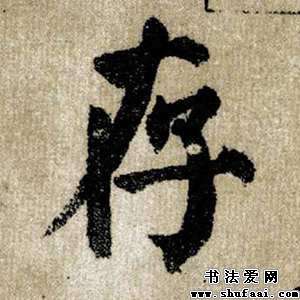 存
书法爱网
www.shufaai.com